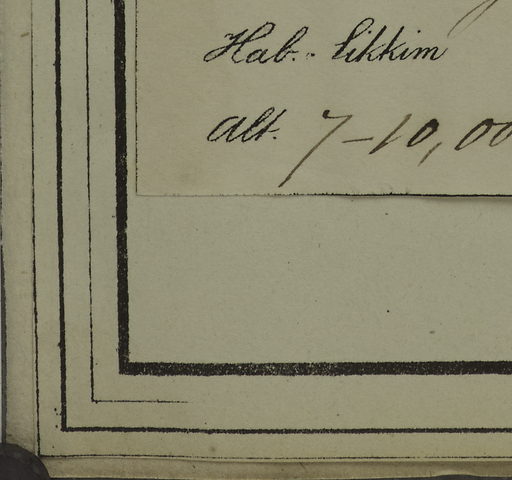 Hab. - Sikkim
Alt. 7-10,00